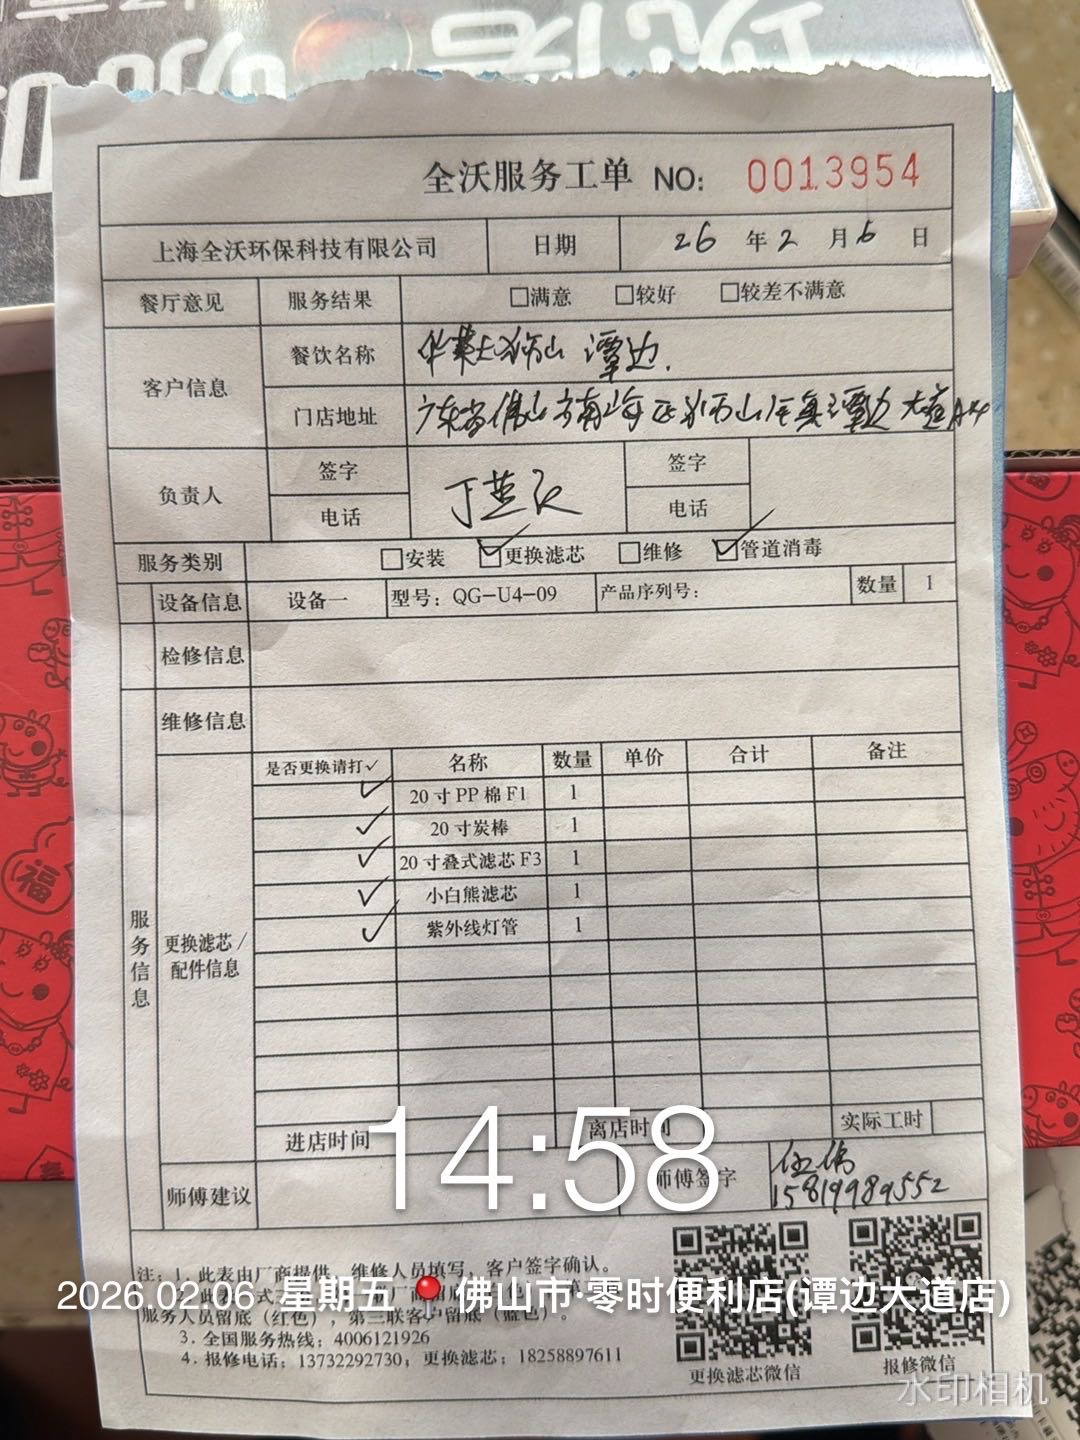 全沃服务工单 NO: 0013954
上海全沃环保科技有限公司 日期 26年2月6日
餐厅意见 服务结果 □满意 □较好 □较差不满意
客户信息
餐饮名称 华莱士佛山 谭边.
门店地址 广东省佛山市南海区狮山镇谭边大道
负责人 签字 电话 签字 电话
服务类别 □安装 ☑更换滤芯 □维修 ☑管道消毒
设备信息 设备一 型号：QG-U4-09 产品序列号： 数量 1
检修信息
维修信息
服务信息
更换滤芯/配件信息
是否更换请打✓ 名称 数量 单价 合计 备注
✓ 20寸PP棉F1 1
✓ 20寸炭棒 1
✓ 20寸叠式滤芯F3 1
✓ 小白熊滤芯 1
✓ 紫外线灯管 1
进店时间 离店时间 实际工时
14:58
师傅建议 师傅签字 15819989552
注：1. 此表由厂商提供，维修人员填写，客户签字确认。
2026.02.06 星期五 佛山市·零时便利店(谭边大道店)
服务人员留底（红色），第三联客户留底（蓝色）。
3. 全国服务热线：4006121926
4. 报修电话：13732292730；更换滤芯：18258897611
更换滤芯微信 报修微信
水印相机